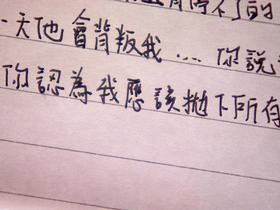 不了的
一天他會背叛我 … 你說
你認為我應該拋下所有